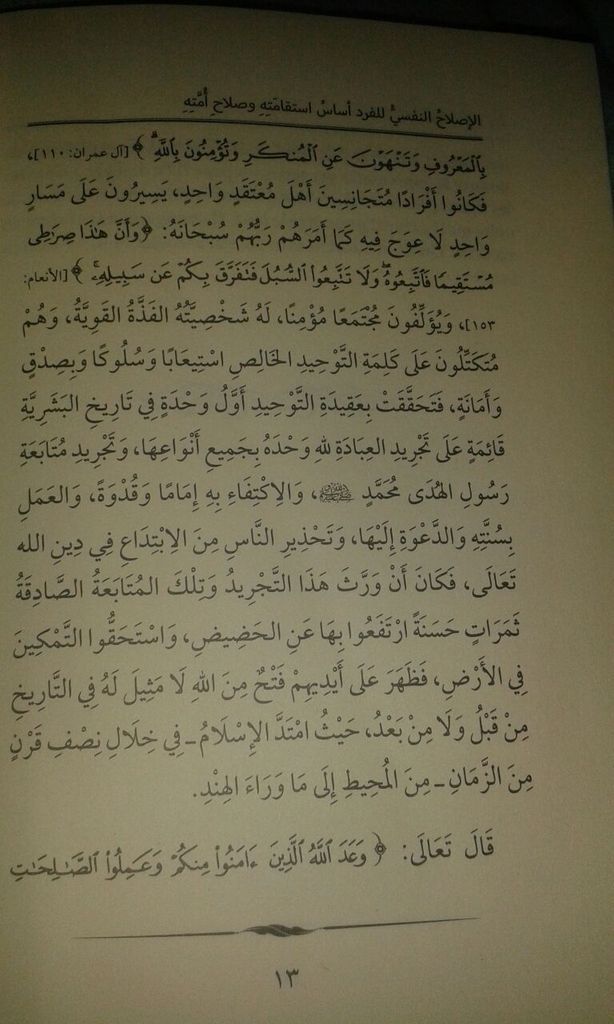 الإصلاحُ النفسيُّ للفردِ أساسُ استقامَتِهِ وصلاحِ أُمَّتِهِ
بِٱلْمَعْرُوفِ وَتَنْهَوْنَ عَنِ ٱلْمُنكَرِ وَتُؤْمِنُونَ بِٱللَّهِ ۗ ﴾ [آل عمران: ١١٠]،
فَكَانُوا أَفْرَادًا مُتَجَانِسِينَ أَهْلَ مُعْتَقَدٍ وَاحِدٍ، يَسِيرُونَ عَلَى مَسَارٍ
وَاحِدٍ لَا عِوَجَ فِيهِ كَمَا أَمَرَهُمْ رَبُّهُمْ سُبْحَانَهُ: ﴿ وَأَنَّ هَٰذَا صِرَٰطِى
مُسْتَقِيمًا فَٱتَّبِعُوهُ ۖ وَلَا تَتَّبِعُوا۟ ٱلسُّبُلَ فَتَفَرَّقَ بِكُمْ عَن سَبِيلِهِۦ ۚ ﴾ [الأنعام:
١٥٣]، وَيُؤَلِّفُونَ مُجْتَمَعًا مُؤْمِنًا، لَهُ شَخْصِيَّتُهُ الفَذَّةُ القَوِيَّةُ، وَهُمْ
مُتَكَتِّلُونَ عَلَى كَلِمَةِ التَّوْحِيدِ الخَالِصِ اسْتِيعَابًا وَسُلُوكًا وَبِصِدْقٍ
وَأَمَانَةٍ، فَتَحَقَّقَتْ بِعَقِيدَةِ التَّوْحِيدِ أَوَّلُ وَحْدَةٍ فِي تَارِيخِ البَشَرِيَّةِ
قَائِمَةٍ عَلَى تَجْرِيدِ العِبَادَةِ لِلهِ وَحْدَهُ بِجَمِيعِ أَنْوَاعِهَا، وَتَجْرِيدِ مُتَابَعَةِ
رَسُولِ الهُدَى مُحَمَّدٍ ﷺ، وَالِاكْتِفَاءِ بِهِ إِمَامًا وَقُدْوَةً، وَالعَمَلِ
بِسُنَّتِهِ وَالدَّعْوَةِ إِلَيْهَا، وَتَحْذِيرِ النَّاسِ مِنَ الِابْتِدَاعِ فِي دِينِ الله
تَعَالَى، فَكَانَ أَنْ وَرَّثَ هَذَا التَّجْرِيدُ وَتِلْكَ المُتَابَعَةُ الصَّادِقَةُ
ثَمَرَاتٍ حَسَنَةً ارْتَفَعُوا بِهَا عَنِ الحَضِيضِ، وَاسْتَحَقُّوا التَّمْكِينَ
فِي الأَرْضِ، فَظَهَرَ عَلَى أَيْدِيهِمْ فَتْحٌ مِنَ اللهِ لَا مَثِيلَ لَهُ فِي التَّارِيخِ
مِنْ قَبْلُ وَلَا مِنْ بَعْدُ، حَيْثُ امْتَدَّ الإِسْلَامُ ـ فِي خِلَالِ نِصْفِ قَرْنٍ
مِنَ الزَّمَانِ ـ مِنَ المُحِيطِ إِلَى مَا وَرَاءَ الهِنْدِ.
قَالَ تَعَالَى: ﴿ وَعَدَ ٱللَّهُ ٱلَّذِينَ ءَامَنُوا۟ مِنكُمْ وَعَمِلُوا۟ ٱلصَّٰلِحَٰتِ
١٣